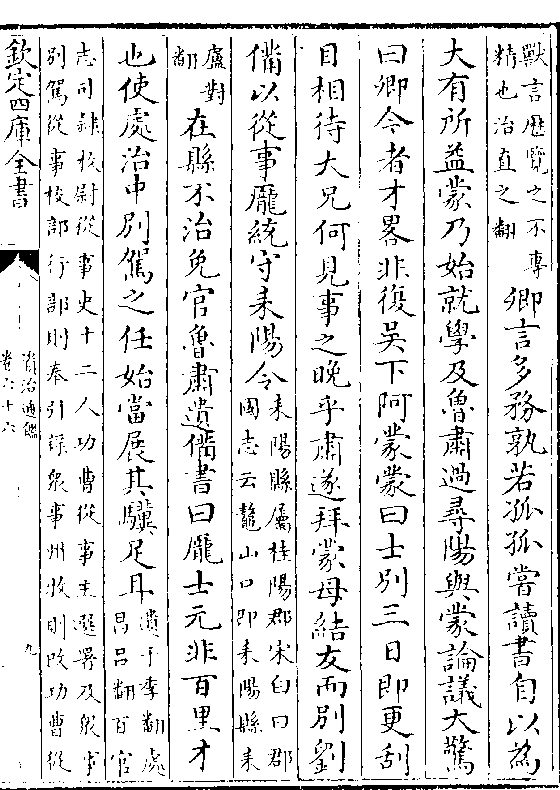 獸言歷覽之不專
精也治直之翻
卿言多務孰若孤孤嘗讀書自以為
大有所益蒙乃始就學及魯肅過尋陽與蒙論議大驚
曰卿今者才畧非復吳下阿蒙蒙曰士別三日即更刮
目相待大兄何見事之晚乎肅遂拜蒙母結友而別劉
備以從事龐統守耒陽令
耒陽縣屬桂陽郡宋白曰郡
國志云鼇山口即耒陽縣耒
盧對
翻
在縣不治免官魯肅遺備書曰龐士元非百里才
也使處治中別駕之任始當展其驥足耳
遺于季翻處
昌呂翻百官
志司隸校尉從事史十二人功曹從事主選署及衆事
別駕從事校部行部則奉引錄衆事州牧則改功曹從
欽定四庫全書
資治通鑑
卷六十六
九